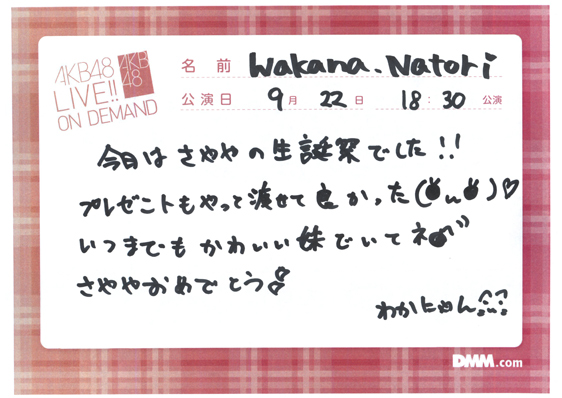 AKB48
LIVE!!
ON DEMAND
AKB
48
名前 Wakana.Natori
公演日 9月 22日 18:30 公演
今日は さややの生誕祭でした!!
プレゼントもやっと渡せて良かった(
いつまでも かわいい妹でいてネ
さややおめでとう
わかにゃん
DMM.com